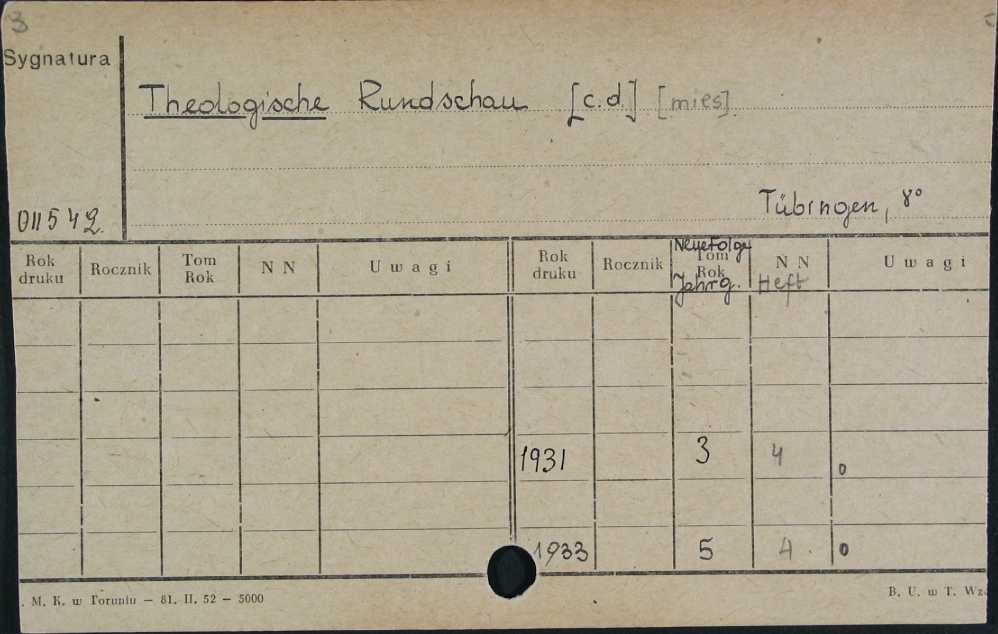 3
Sygnatura
Theologische Rundschau [c.d.] [mies].
Tübingen, 8°
011542.
Rok druku Rocznik Tom Rok N N Uwagi Rok druku Rocznik Neue Folge Tom Rok Jahrg. N N Heft Uwagi
1931 3 4 o
1933 5 4 . o
. M. K. w Toruniu — 81. II. 52 — 5000 B. U. w T. Wzó